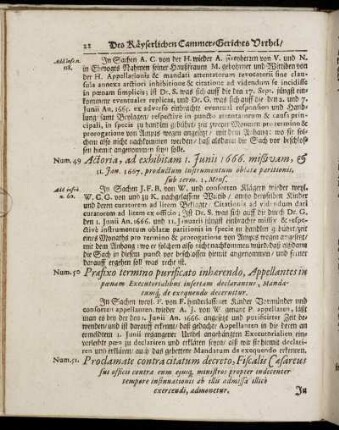 22 Des Käyserlichen Cammer-Gerichts Urtheil/
In Sachen A. C. von der H. wieder A. Freyherrn von V. und N.
in Ehevogts Nahmen seiner Haußfrauen M. gebohrner und Wittiben von
der H. Appellationis & mandati attentatorum revocatorii sine clau-
sula annexa arctiori inhibitione & citatione ad videndum se incidisse
in pœnam simplicis; ist Dr. S. was sich auff die den 17. Sept. jüngst ein-
kommene eventualer replicas, und Dr. G. was sich auff die den 2. und 7.
Junii An. 1665. ex adverso eventual responsion und Hand-
lung samt Beylagen respectivè in puncto
cipali, in specie zu handeln gebühret zeit zweyer Monaten pro termino &
prorogatione von Ampts wegen angesetzt; mit dem Anhang: wo sie sol-
chem also nicht nachkommen werden, daß alsdann die Sach vor beschlos-
sen hiermit angenommen seyn solle.
Num. 49 Actoria, ad exhibitam 1. Junii 1666. missivam, &
11. Jan. 1667. productum instrumentum oblatæ partitionis,
sub term. 2. Mens.
In Sachen J. F. B. von W. und consorten Klägern wieder weyl.
W. C. G. von und zu K. nachgelassene Wittib / etwo deroselben Kinder
und deren curatoren ad litem Beklagte, Citationis ad videndum dari
curatorem ad litem ex officio; Ist Dr. S. was sich auff die durch Dr. G.
den 1. Junii An. 1666. und 11. Januarii jüngst einbrachte missiv & respectivè
instrumentum oblatæ partitionis in specie zu handeln gebühret, zeit zweyer
Monaten pro termino & prorogatione von Ampts wegen angesetzt,
mit dem Anhang: wo er solchem also nicht nachkommen würd, daß alsdann
die Sach in diesem punct vor beschlossen hiermit angenommen / und ferner
darauff ergehen soll was recht ist.
Num. 50 Præfixo termino purificato inhærendo, Appellantes in
pœnam Executorialibus insertam declarantur, Manda-
tumq; de exequendo decernitur.
In Sachen weyl. F. von F. hinderlassener Kinder Vormünder und
consorten Appellanten wieder A. J. von W. genant P. appellaten, läst
man es bey der den 1. Junii An. 1666. angesetzt und purificirter Zeit be-
wenden/ und ist darauff erkennt; daß gedachte Appellanten in die denen an
declariren und erklären, auch das gebettene Mandatum de exequendo erkennen.
Num. 51. Proclamate contra citatum decreto, Fiscalis Cæsareus
sui officii contra eum ejusq; ministros propter indecenter
tempore insinuationis ab illis admissa illicò
exercendi, admonetur.
In